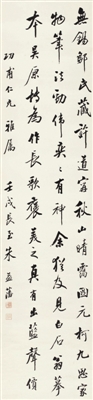 無錫鄒氏藏許道寧秋山晴靄圖元柯九思定
物筆法勁偉奕奕有神余猶及見白石翁摹
本吳原博為作長歌褒美之真有出藍聲價
功甫仁兄雅屬 壬戌長至朱益藩